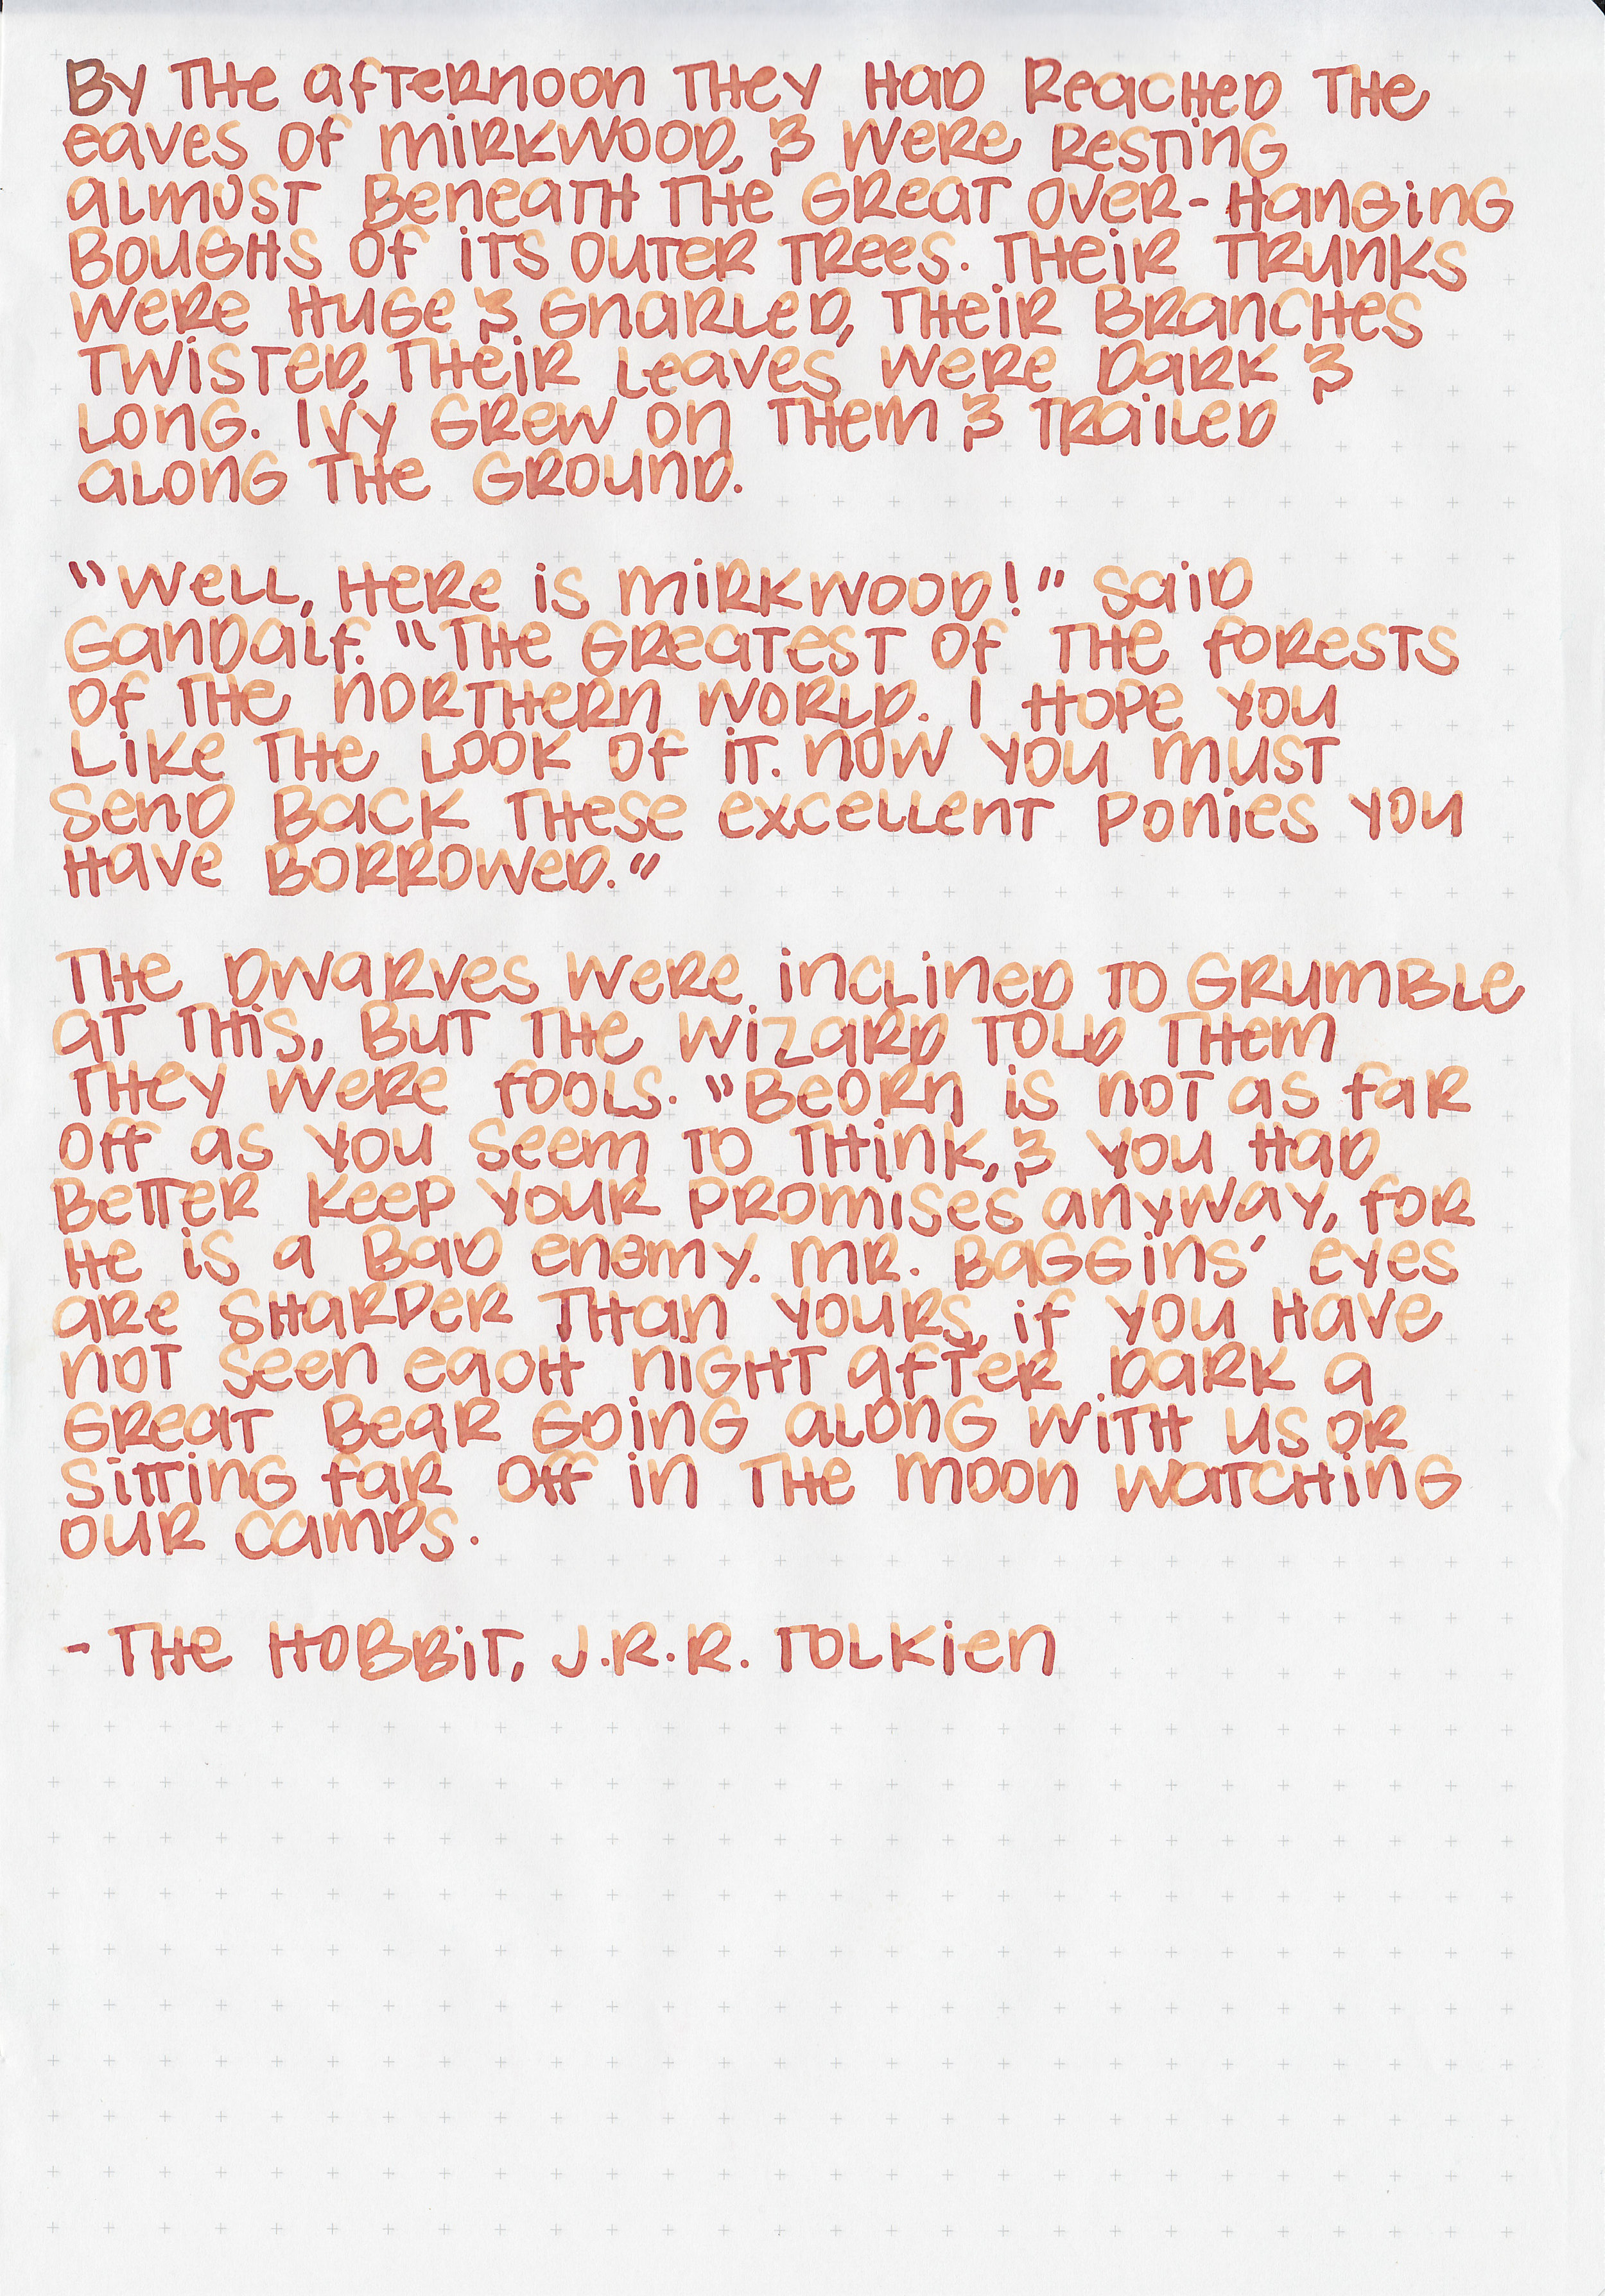 By the afternoon they had reached the
eaves of Mirkwood, & were resting
almost beneath the great over-hanging
boughs of its outer trees. Their trunks
were huge & gnarled, their branches
twisted, their leaves were dark &
long. Ivy grew on them & trailed
along the ground.
"Well, here is Mirkwood!" said
Gandalf. "The greatest of the forests
of the northern world. I hope you
like the look of it. Now you must
send back these excellent ponies you
have borrowed."
The dwarves were inclined to grumble
at this, but the wizard told them
they were fools. "Beorn is not as far
off as you seem to think, & you had
better keep your promises anyway, for
he is a bad enemy. Mr. Baggins' eyes
are sharper than yours, if you have
not seen each night after dark a
great bear going along with us or
sitting far off in the moon watching
our camps.
- The Hobbit, J.R.R. Tolkien